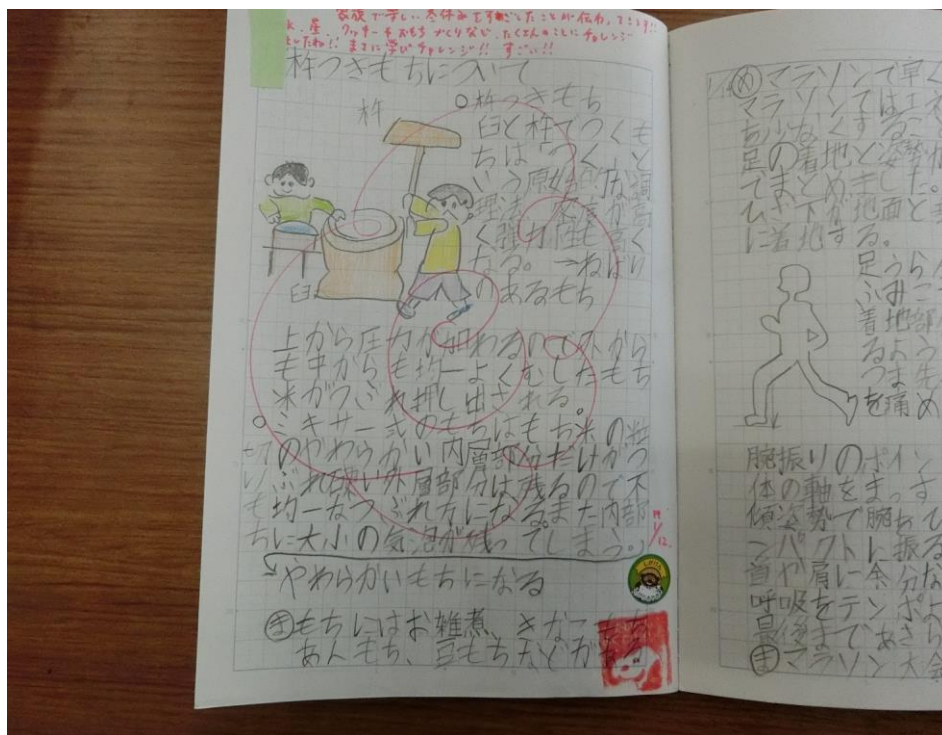 家族で楽しい冬休みをすごしたことが伝わってきます!!
星、クッキーやおもちづくりなど、たくさんのことにチャレンジ
したね!! まさに学びチャレンジ!! すごい!!
杵つきもちについて
杵
○杵つきもち
臼と杵でつくも
ちは「つく」と
いう原始的な調
理法
く強力
なる。→ねばり
のあるもち
臼
上から圧力が加わるので外から
も中からも均一よくむしたもち
米がつぶれ押し出される。
○ミキサー式のもちはもち米の粒
のやわらかい内層部分だけがつ
ぶれ硬い外層部分は残るので不
均一なつぶれ方になるまた内部
に大小の気泡が残ってしまう。
切
り
も
ち
1/12
やわらかいもちになる
まもちにはお雑煮、きなこもち
あんもち、豆もちなどがある
めマラソンで早く
マラソンではエネ
足の着地と姿勢
てまとめました。
ひざ下が地面と
に着地する。
足うら
ふみこ
着地部
るよう
つま先
を痛め
腕振りのポイン
体の軸をまっす
傾姿勢で腕を
ンパクトに振る
首や肩に余分な
呼吸をテンポよ
最後まであきら
まマラソン大会